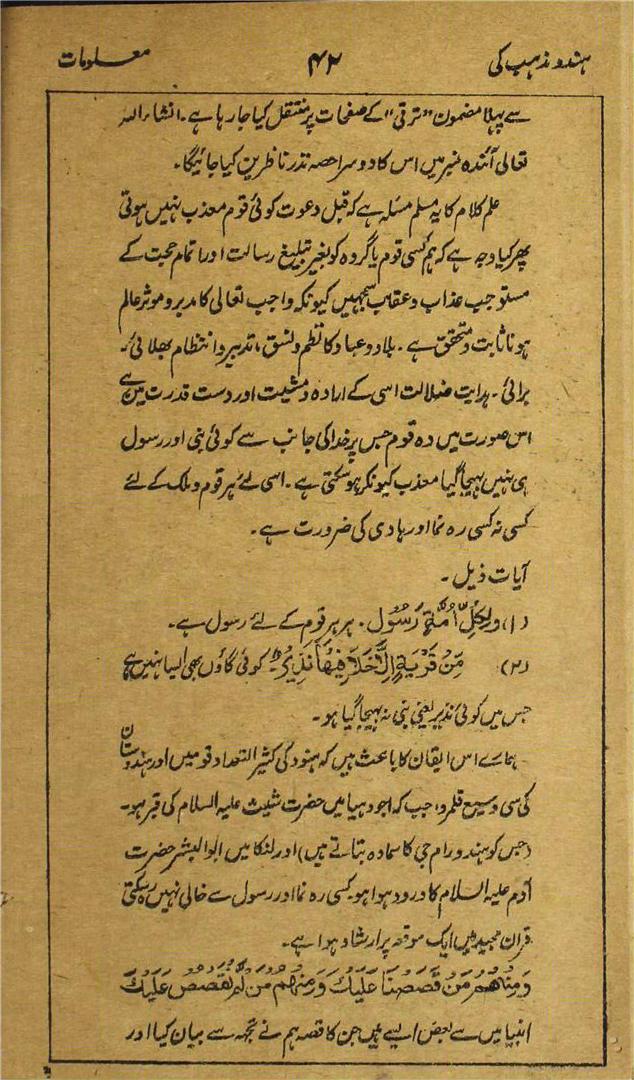 ہندو مذہب کی
۴۲
معلومات
سے پہلا مضمون "ترقی" کے صفحات پر منتقل کیا جا رہا ہے۔ انشاء اللہ
تعالی آئندہ نمبر میں اس کا دوسرا حصہ نذر ناظرین کیا جائیگا۔
علم کلام کا یہ مسلم مسئلہ ہے کہ قبل دعوت کوئی قوم معذب نہیں ہوتی
پھر کیا وجہ ہے کہ ہم کسی قوم یا گروہ کو بغیر تبلیغ رسالت اور اتمام حجت کے
مستوجب عذاب و عقاب سمجہیں کیونکہ واجب تعالی کا مدبر و موثر عالم
ہونا ثابت و متحقق ہے۔ بلاد و عباد کا نظم و نسق، تدبیر و انتظام بھلائی
برائی۔ ہدایت ضلالت اسی کے ارادہ و مشیت اور دست قدرت میں ہے
اس صورت میں وہ قوم جس پر خدا کی جانب سے کوئی نبی اور رسول
ہی نہیں بہیجا گیا معذب کیونکر ہو سکتی ہے۔ اسی لئے ہر قوم و ملک کے لئے
کسی نہ کسی رہ نما اور ہادی کی ضرورت ہے۔
آیات ذیل۔
(۱) وَلِکُلِّ اُمَّۃٍ رَسُوْل۔ ہر ہر قوم کے لئے رسول ہے۔
(۲) مِنْ قَرْیَۃٍ اِلَّا خَلَا فِیْھَا نَذِیْرٌ۔ کوئی گاؤں بھی ایسا نہیں ہے
جس میں کوئی نذیر یعنی نبی نہ بہیجا گیا ہو۔
ہمارے اس ایقان کا باعث ہیں کہ ہنود کی کثیر التعداد قومیں اور ہندوستان
کی سی وسیع قلمرو جب کہ اجودہیا میں حضرت شیث علیہ السلام کی قبر ہو۔
(جس کو ہندو رام جی کا سمادہ بتاتے ہیں) اور لنکا میں ابوالبشر حضرت
آدم علیہ السلام کا ورود ہوا ہو۔ کسی رہ نما اور رسول سے خالی نہیں رہ سکتی
قران مجید میں ایک موقعہ پر ارشاد ہوا ہے۔
وَمِنْھُمْ مَنْ قَصَصْنَا عَلَیْكَ وَمِنْھُمْ مَنْ لَمْ نَقْصُصْ عَلَیْكَ
انبیا میں سے بعض ایسے ہیں جن کا قصہ ہم نے تجہہ سے بیان کیا اور